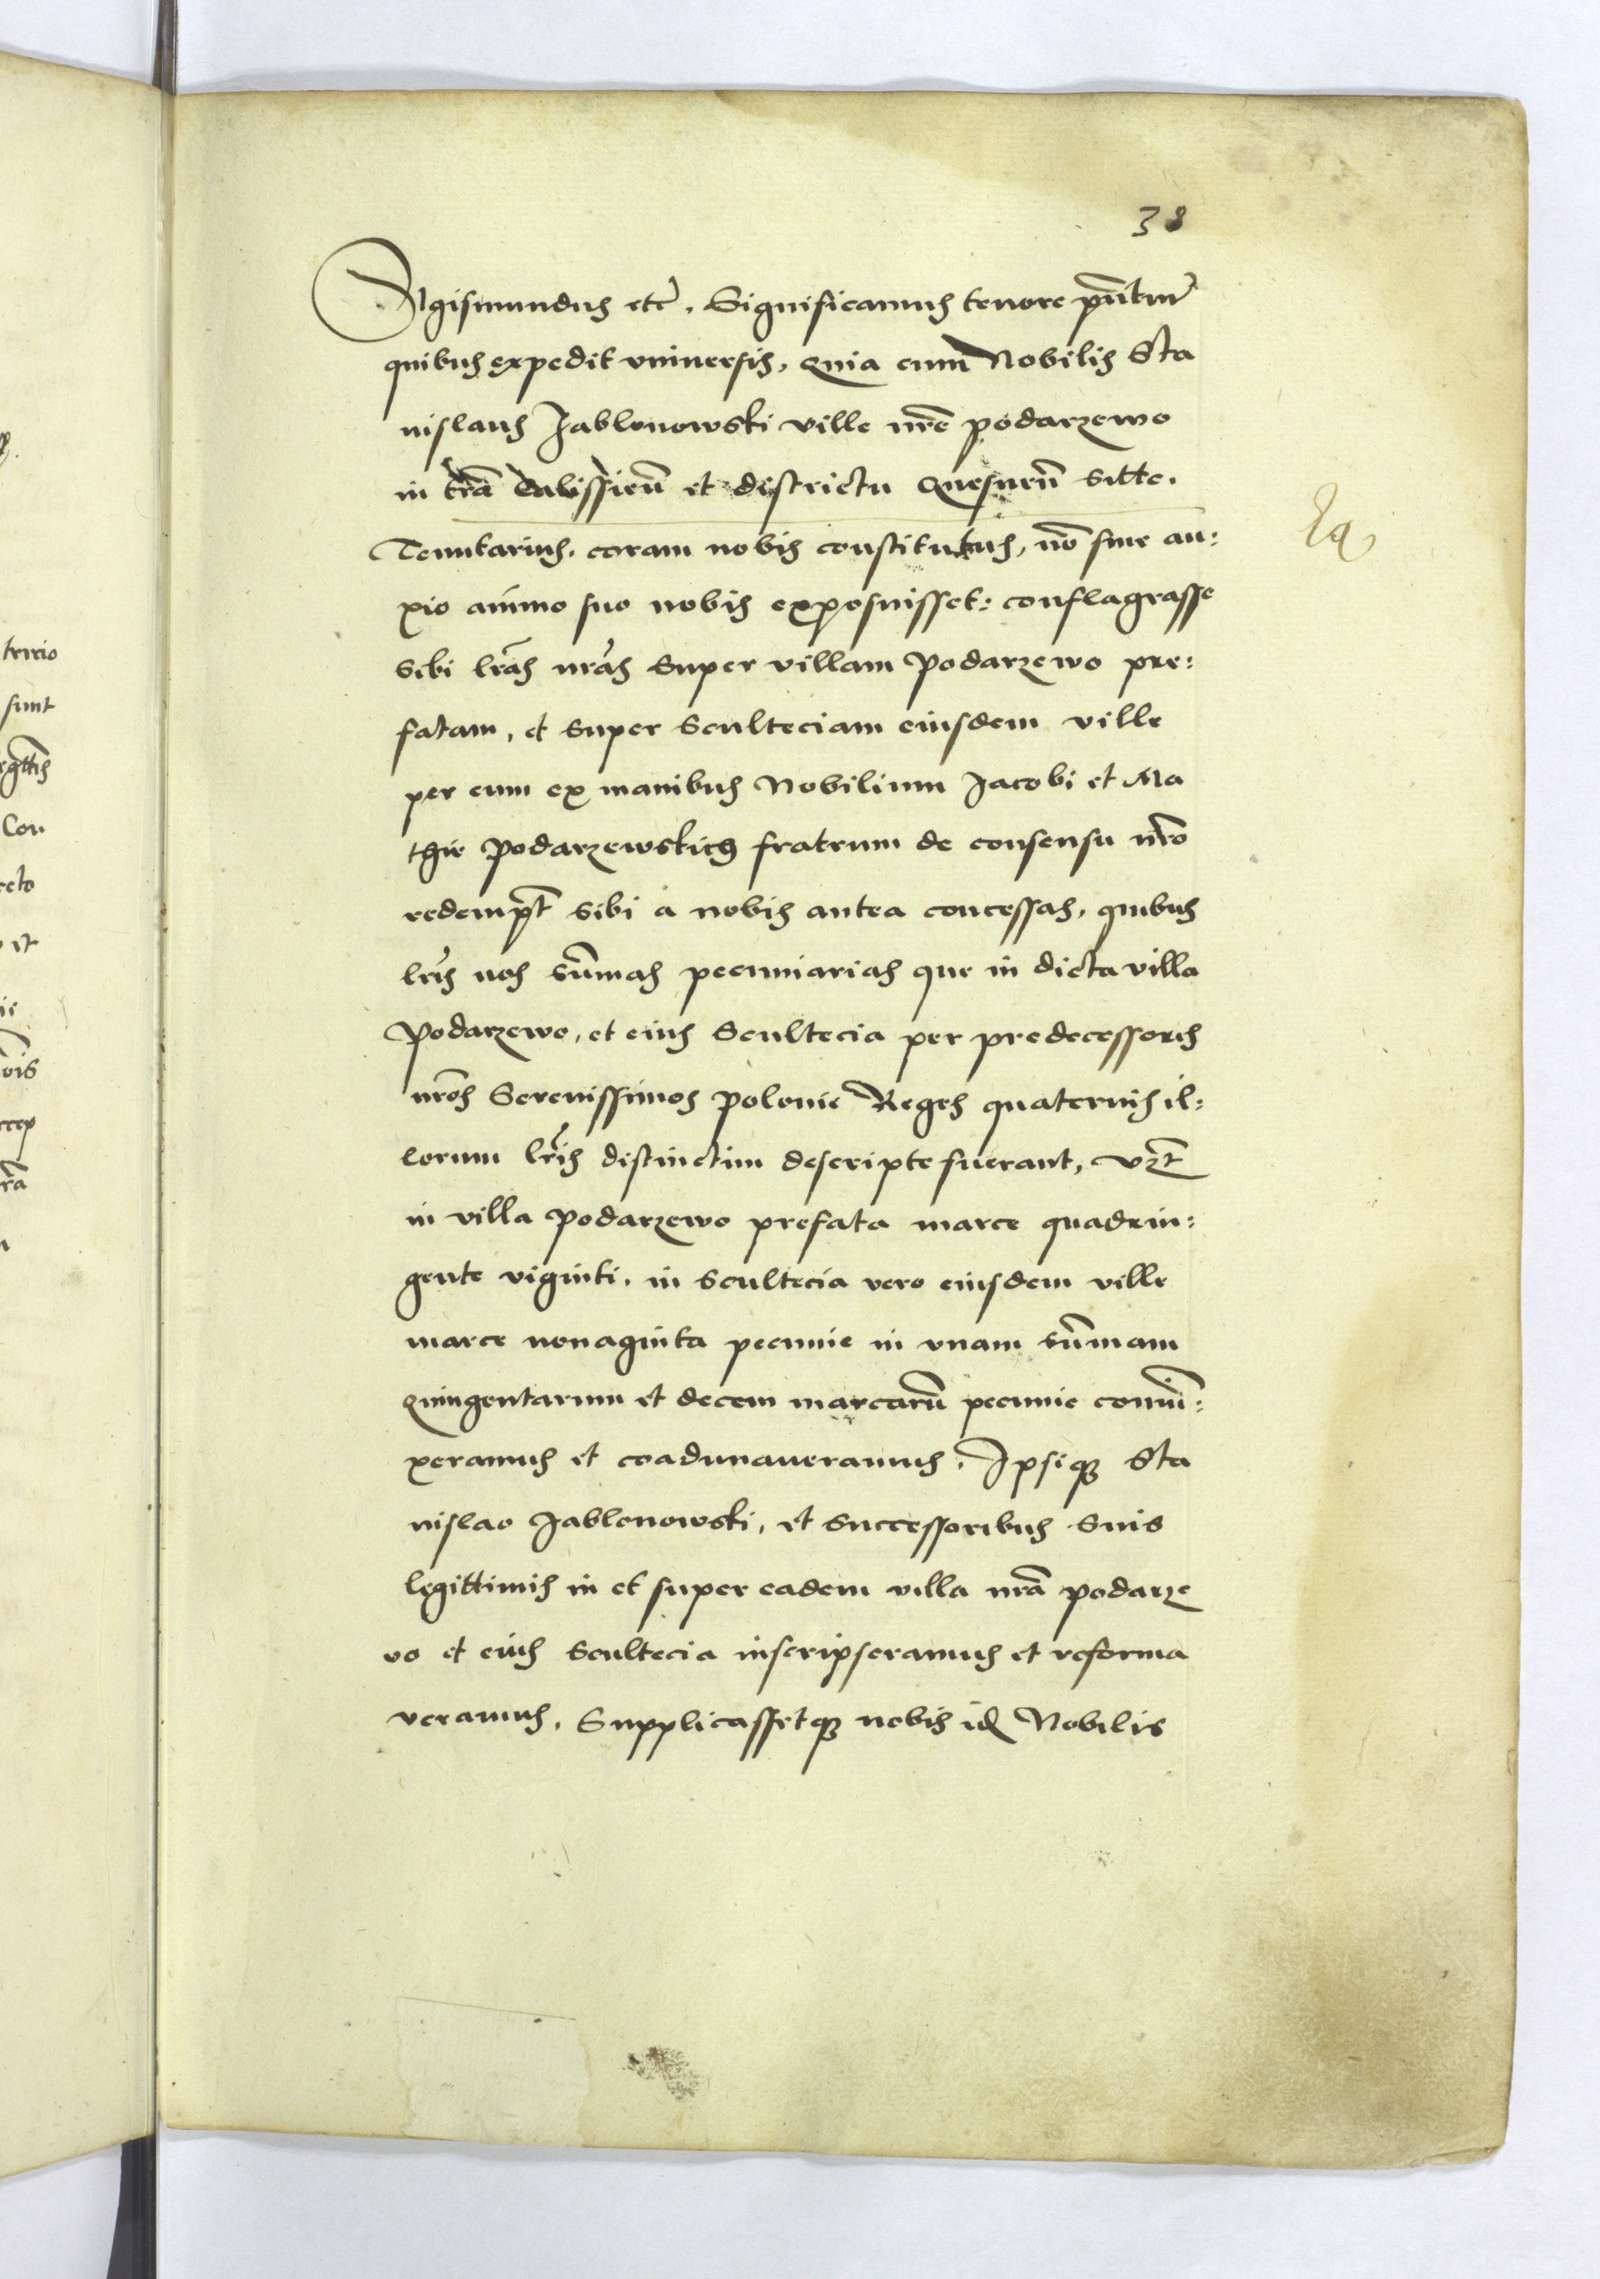 38
Sigismundus etc̃. Significamus tenore pñtium
quibus expedit vniuersis, quia cum Nobilis Sta
nislaus Jablonowski ville nr̃e podarzewo
in tr̃a Calissieñ et districtu Quesneñ sitte.
Tenutarius, coram nobis constitutus, nõ sine an:
xio animo suo nobis exposuisset: conflagrasse
sibi lr̃as nr̃as super villam podarzewo pre:
fatam, et super sculteciam eiusdem ville
per eum ex manibus Nobilium Jacobi et Ma
thie podarzewskich fratrum de consensu nr̃o
redempt̃ sibi a nobis antea concessas, quibus
lr̃is nos sum̃as pecuniarias que in dicta villa
podarzewo, et eius scultecia per predecessores
nr̃os Serenissimos polonie Reges quaternis il:
lorum lr̃is distinctim descripte fuerant, vzt̃
in villa podarzewo prefata marce quadrin:
gente viginti, in scultecia vero eiusdem ville
marce nonaginta pecunie in vnam sum̃am
quingentarum et decem marcarũ pecunie coniũ:
xeramus et coadunaueramus, Ipsiqꝫ Sta
nislao Jablonowski, et successoribus suis
legittimis in et super eadem villa nr̃a podarze
vo et eius scultecia inscripseramus et reforma
veramus, Supplicassetqꝫ nobis idẽ Nobilis